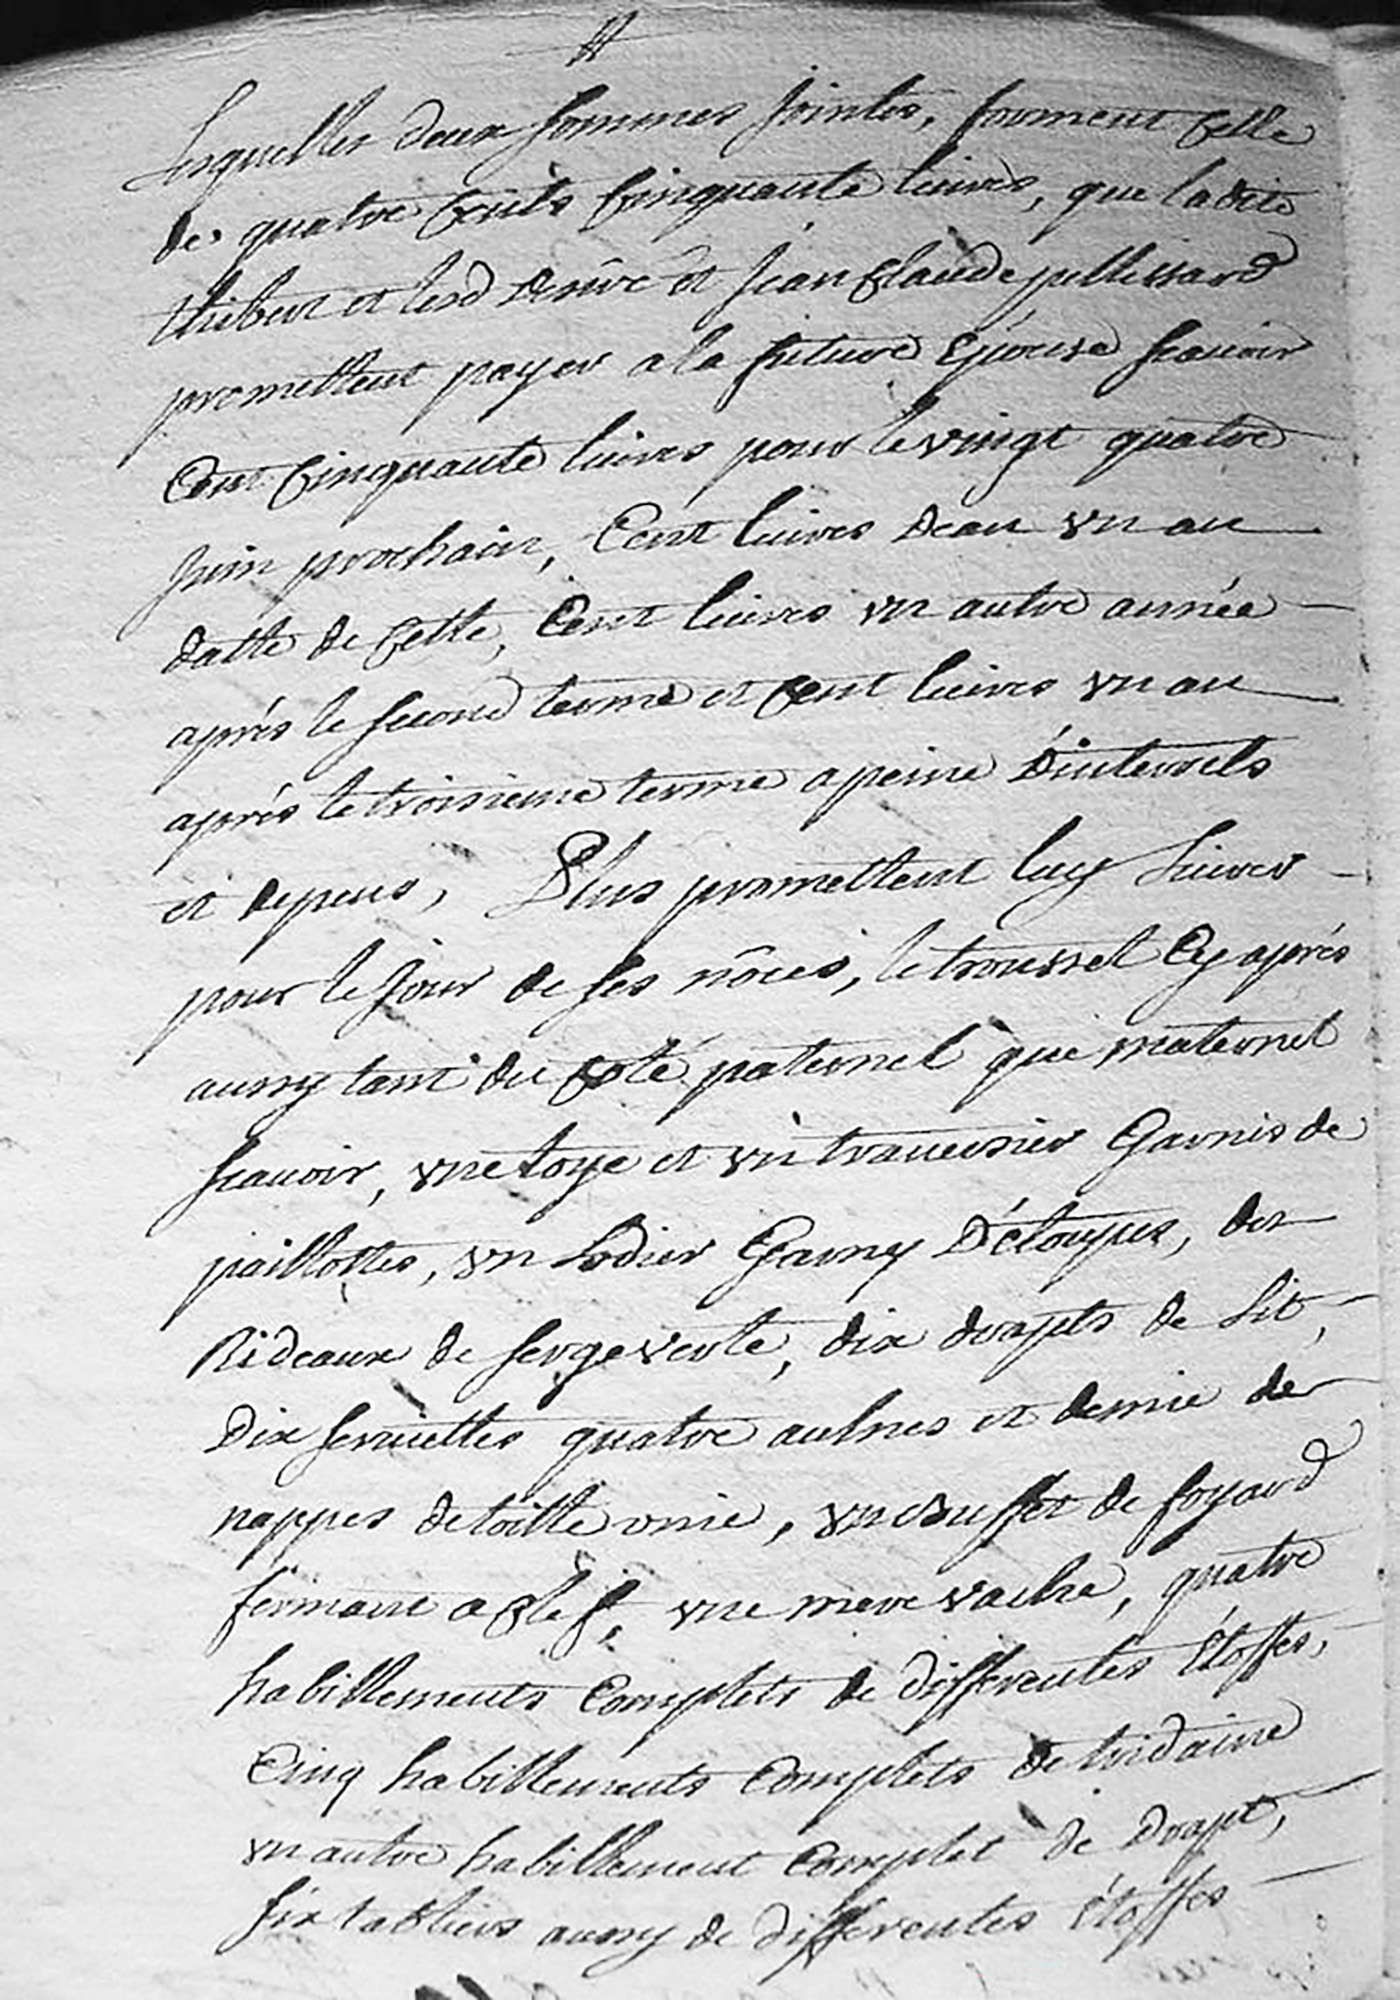 Lesquelles deux sommes jointes, forment celle
de quatre cents cinquante livres, que ladite
thibert et lesd Desiré et jean Claude pellissard
promettent payer a la future Epouse scauoir
Cent cinquante liures pour le vingt quatre
juin prochain, Cent liures d'un an
datte de cette, Cent liures vn autre année
aprés le second terme et cent liures vn an
aprés le troisieme terme a peine D'interrets
et depens, Plus promettent luy liurer
pour le jour de ses nôces, le troussel Cy aprés
aussy tant du coté paternel que maternel
scauoir, vne toye et vn trauersier Garnis de
paillottes, vn Lodier Garny D'étoupes, des
Rideaux de serge verte, dix drapts de Lit,
Dix seruiettes quatre aulnes et demie de
nappes de toille vnie, vn buffet de foyard
fermant a clef, vne mere vache, quatre
habillements Complets de differentes Étoffes,
Cinq habillements Complets de tridaine
vn autre habillement Complet de Drapt,
six tabliers aussy de differentes étoffes